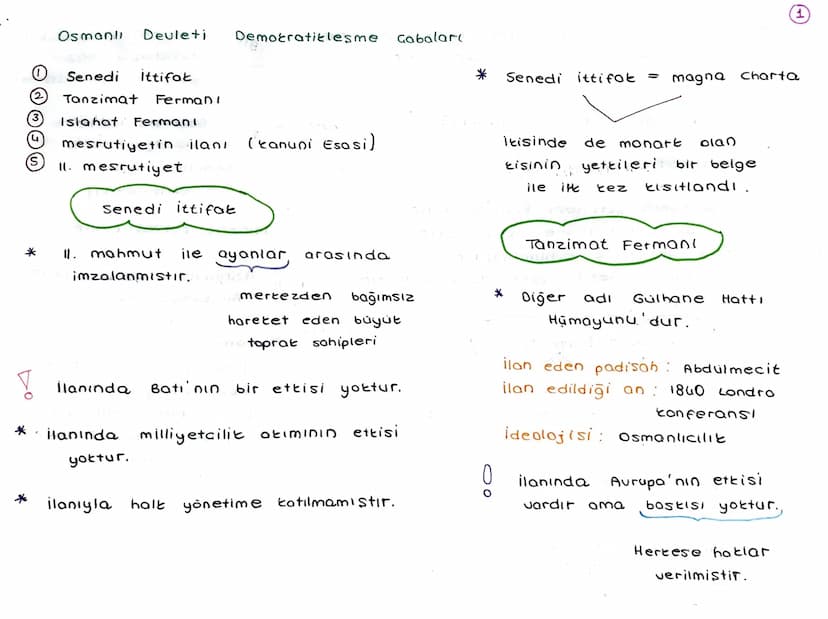 1
Osmanlı Devleti Demokratikleşme Çabaları
① Senedi İttifak
② Tanzimat Fermanı
③ Islahat Fermanı
④ meşrutiyetin ilanı (kanuni Esasi)
⑤ II. meşrutiyet
Senedi İttifak
* II. mahmut ile ayanlar arasında
imzalanmıştır.
merkezden bağımsız
hareket eden büyük
toprak sahipleri
! İlanında Batı'nın bir etkisi yoktur.
* İlanında milliyetcilik akımının etkisi
yoktur.
* İlanıyla halk yönetime katılmamıştır.
* Senedi ittifak = magna charta
İkisinde de monark olan
kişinin yetkileri bir belge
ile ilk kez kısıtlandı.
Tanzimat Fermanı
* Diğer adı Gülhane Hattı
Hümayunu'dur.
İlan eden padişah: Abdulmecit
İlan edildiği an: 1840 Londra
konferansı
İdeolojisi: Osmanlıcılık
! İlanında Avrupa'nın etkisi
vardır ama baskısı yoktur.
Herkese haklar
verilmiştir.